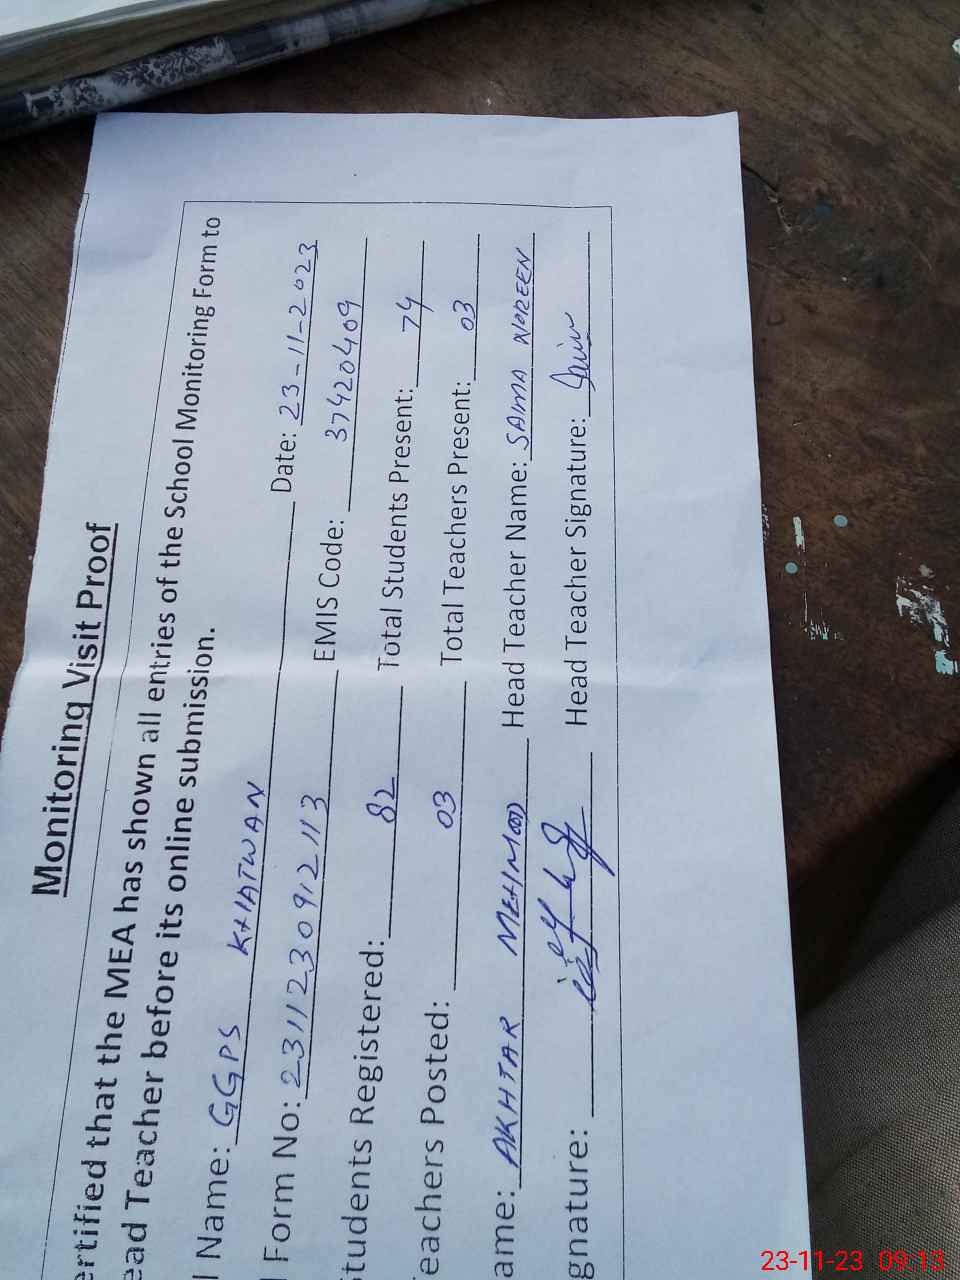 Monitoring Visit Proof
ertified that the MEA has shown all entries of the School Monitoring Form to
ead Teacher before its online submission.
l Name: GGPS KHATWAN Date: 23-11-2023
l Form No: 2311230912113 EMIS Code: 37420409
Students Registered: 82 Total Students Present: 74
Teachers Posted: 03 Total Teachers Present: 03
ame: AKHTAR MEHMOOD Head Teacher Name: SAIMA NOREEN
gnature: Head Teacher Signature:
23-11-23 09:13